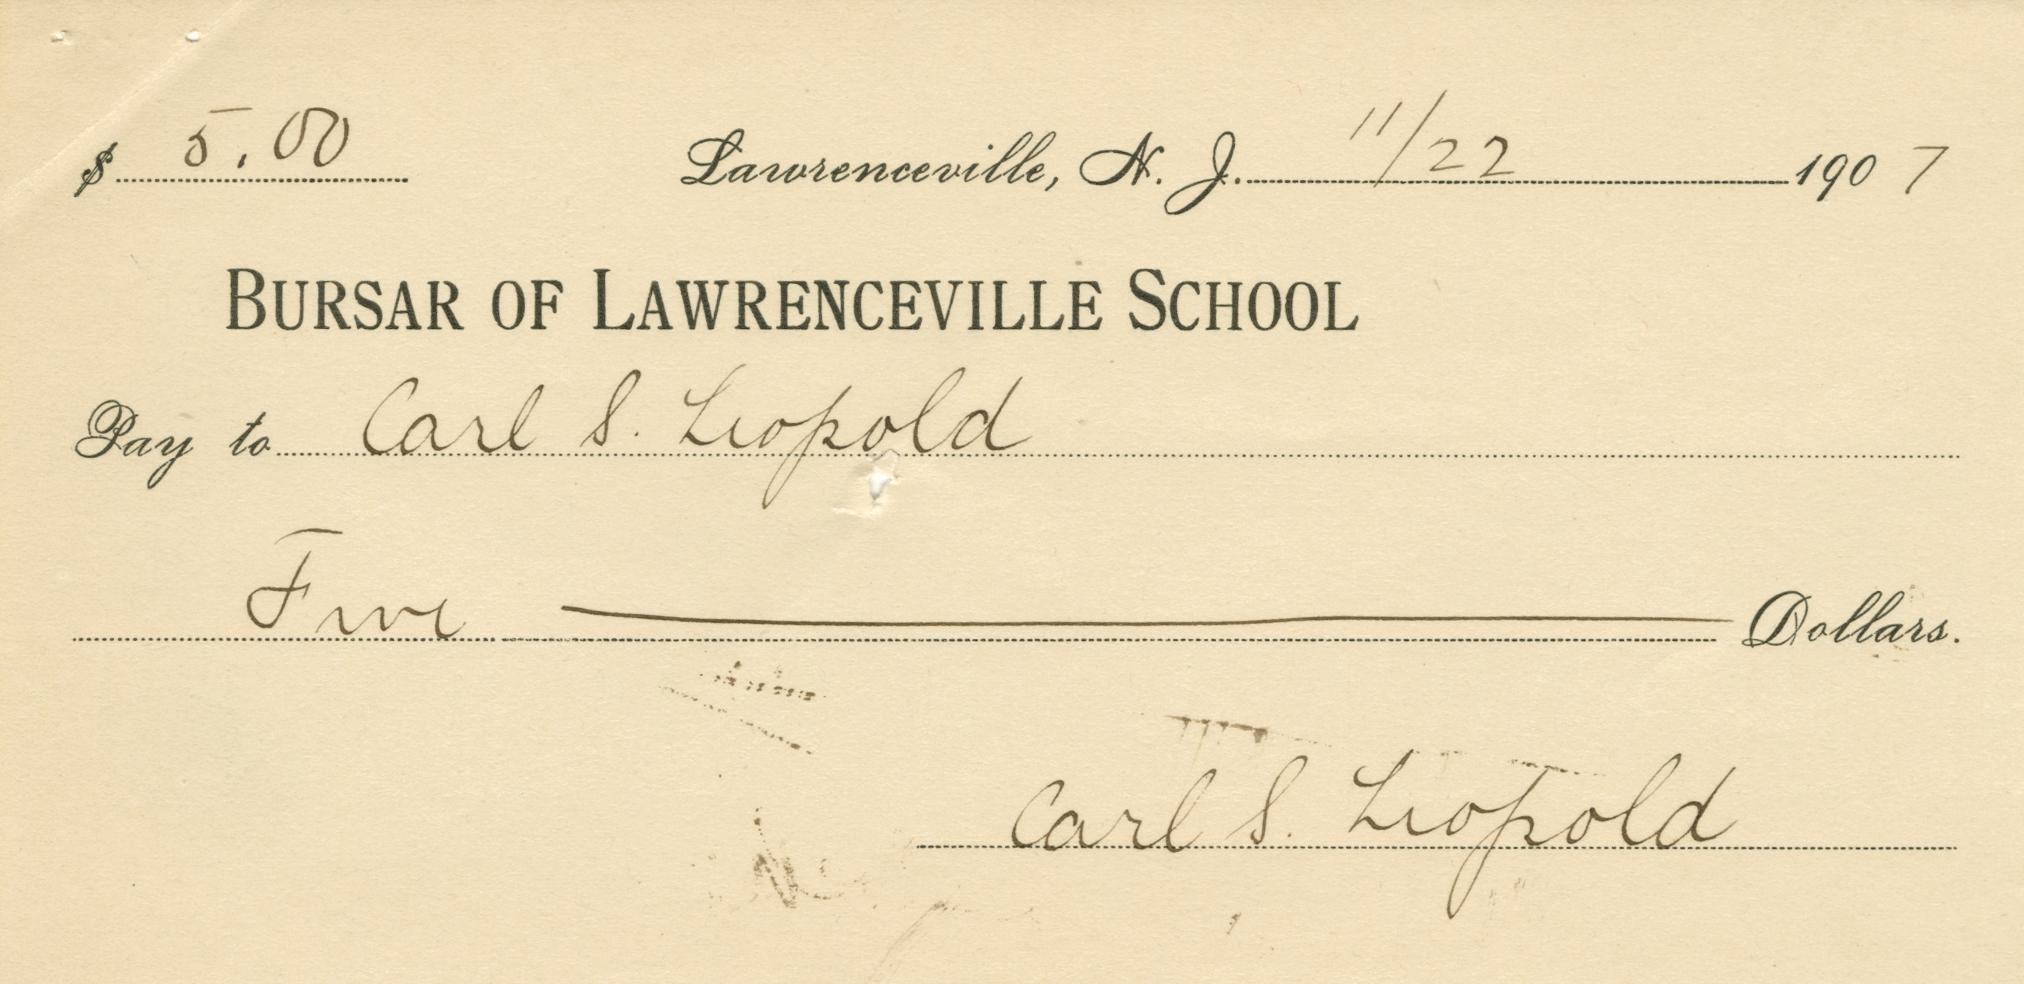 $ 5.00 Lawrenceville, N. J. 11/22 1907
BURSAR OF LAWRENCEVILLE SCHOOL
Pay to Carl S. Leopold
Five Dollars.
Carl S. Leopold